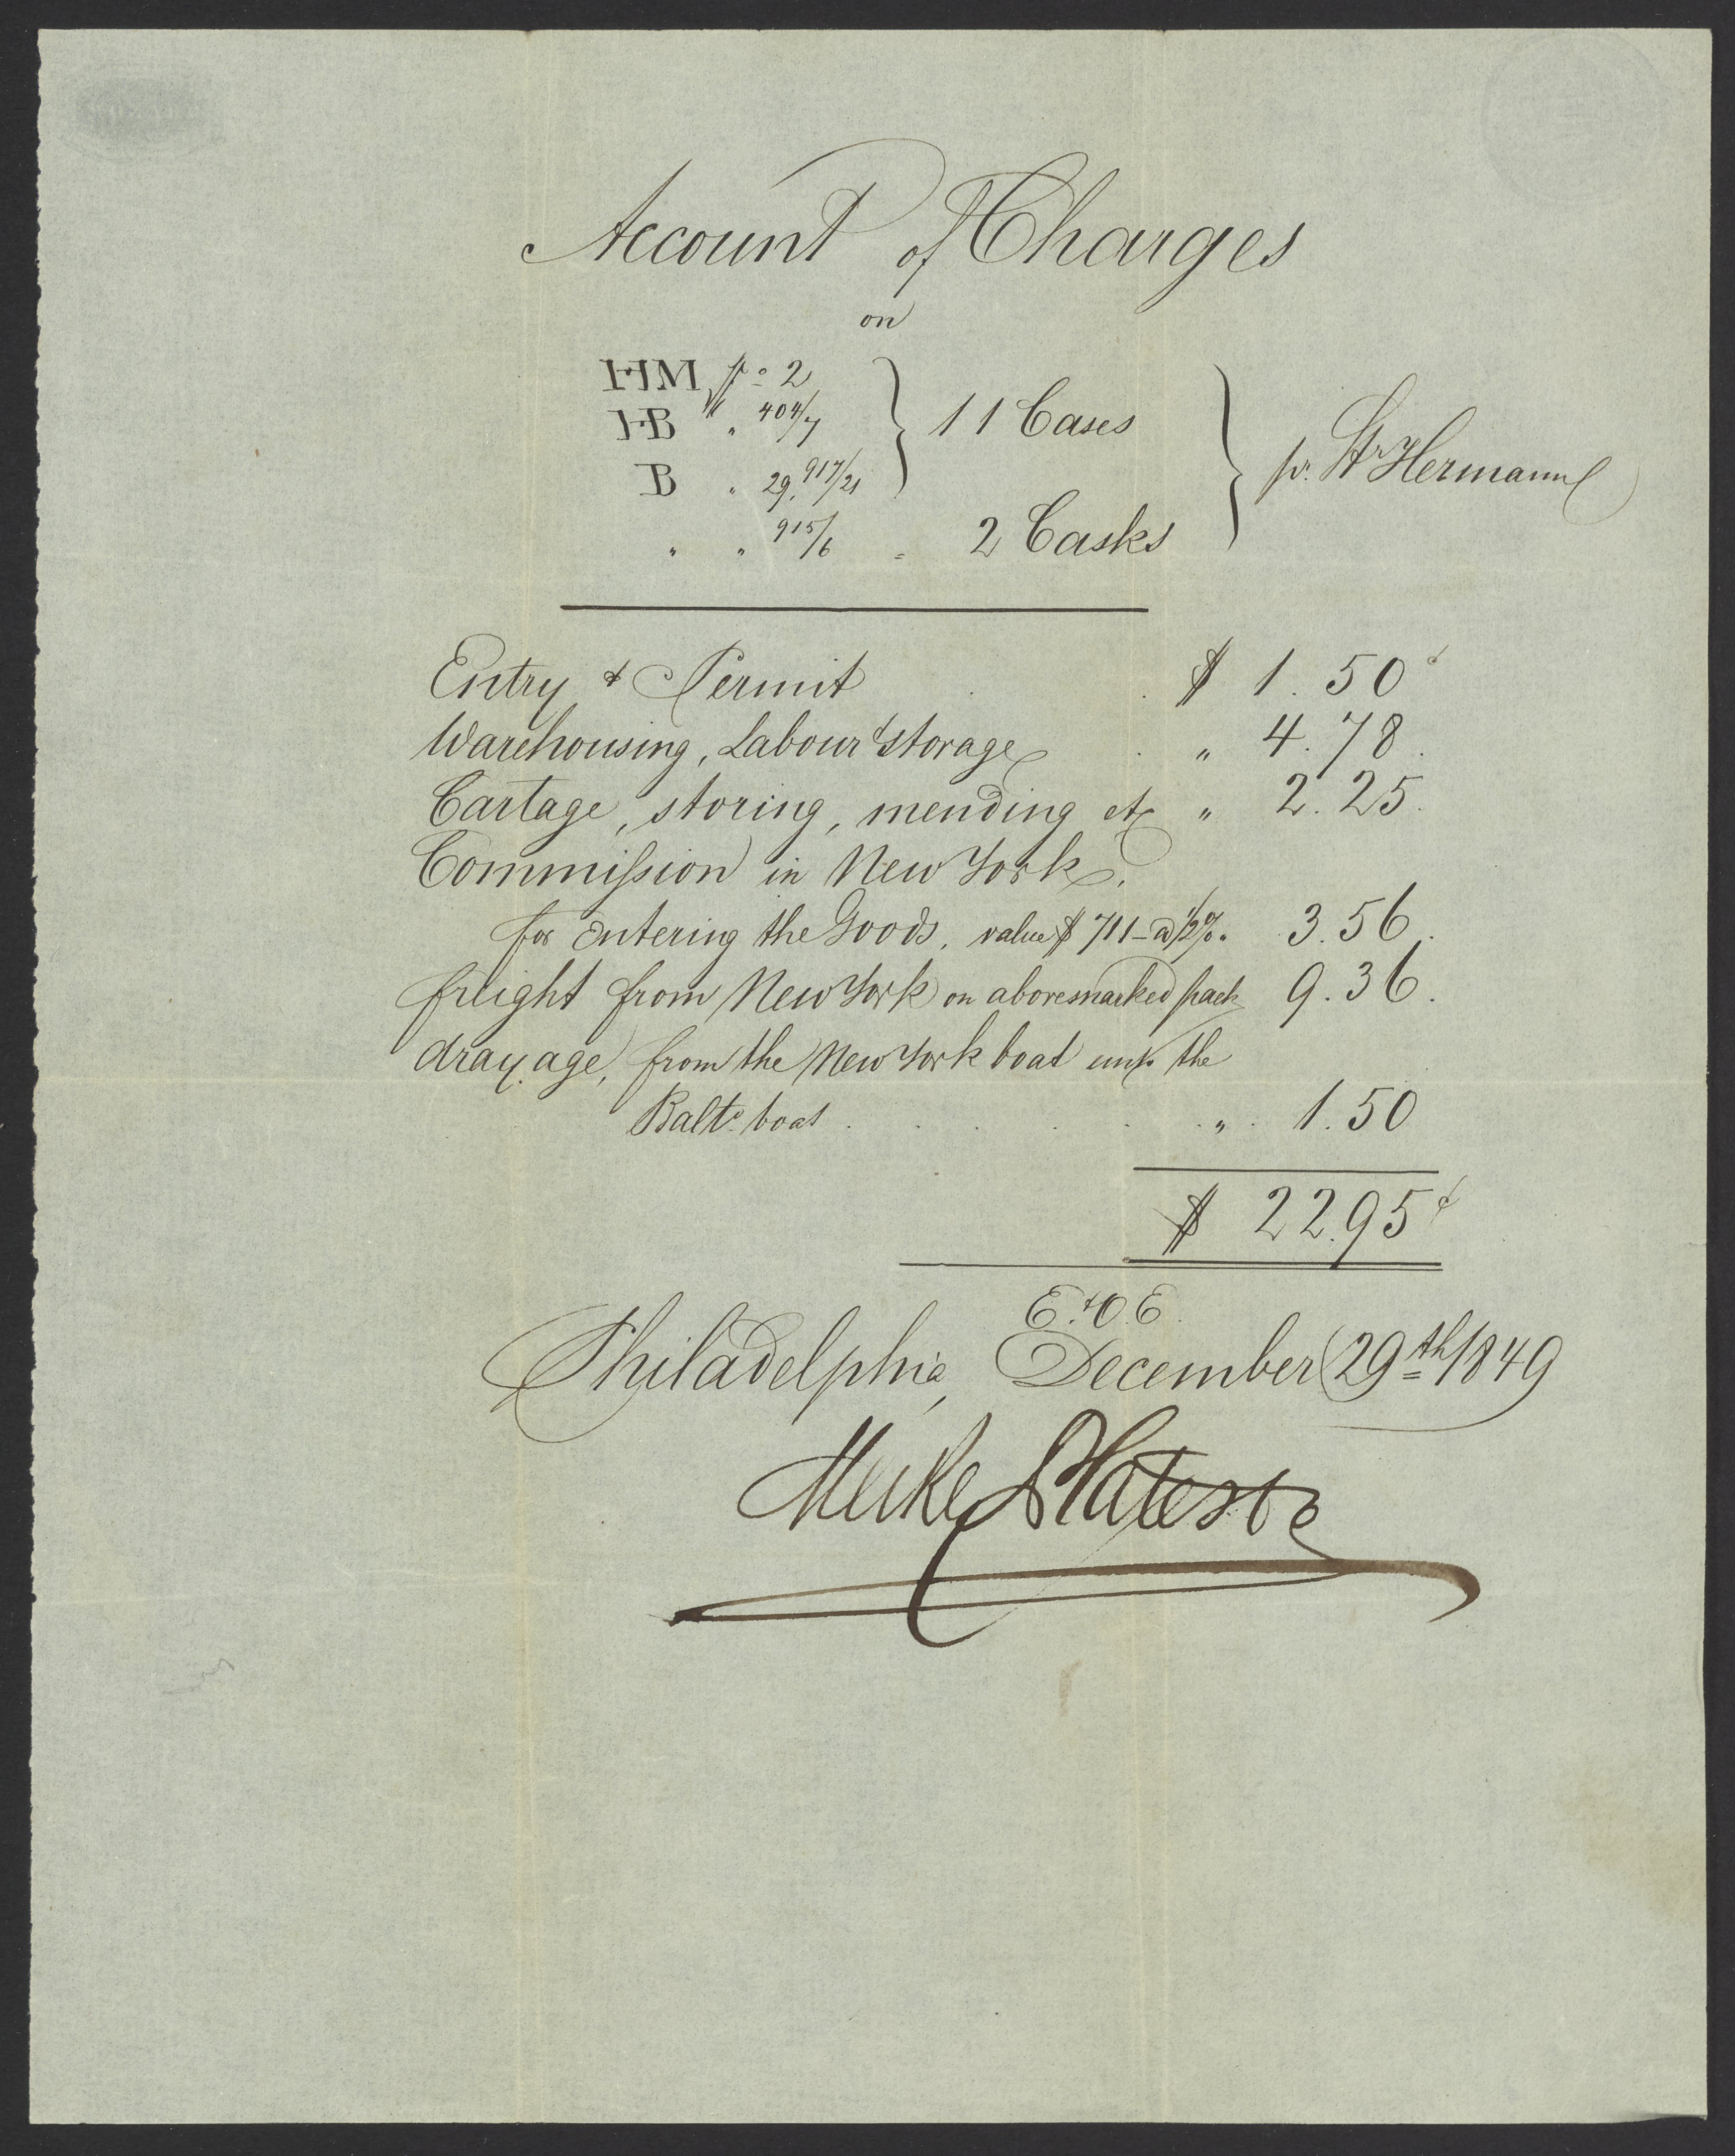 Account of Charges
on
HM No 2
HB " " 404/7 } 11 Cases
B " 29. 917/21
" " 915/6 = 2 Casks } pr. Str Hermann
Entry & Permit . . $ 1.50 c
Warehousing, Labour & storage . " 4.78.
Cartage, storing, mending etc " 2.25.
Commission in New York.
for entering the Goods, value $ 711 – @ 1/2 % " 3.56.
freight from New York on abovemarked pack 9.36.
drayage, from the New York boat unto the
Balto. boat . . . . . " . 1.50
$ 22.95 c
E. & O. E.
Philadelphia, December 29th 1849